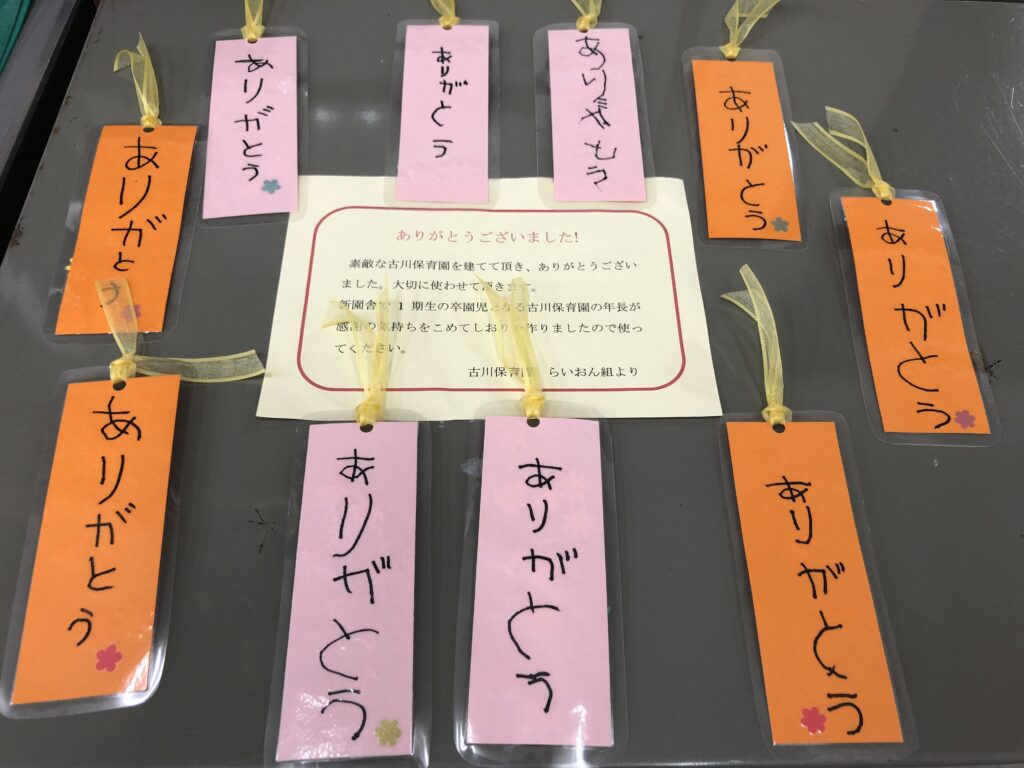 ありがとう
ありがとう
ありがとう
ありがとう
ありがとう
ありがとう
ありがとうございました!
素敵な古川保育園を建てて頂き、ありがとうござい
ました。大切に使わせて頂きます。
新園舎で 1 期生の卒園児となる古川保育園の年長が
感謝の気持ちをこめてしおりを作りましたので使っ
てください。
古川保育園 らいおん組より
ありがとう
ありがとう
ありがとう
ありがとう